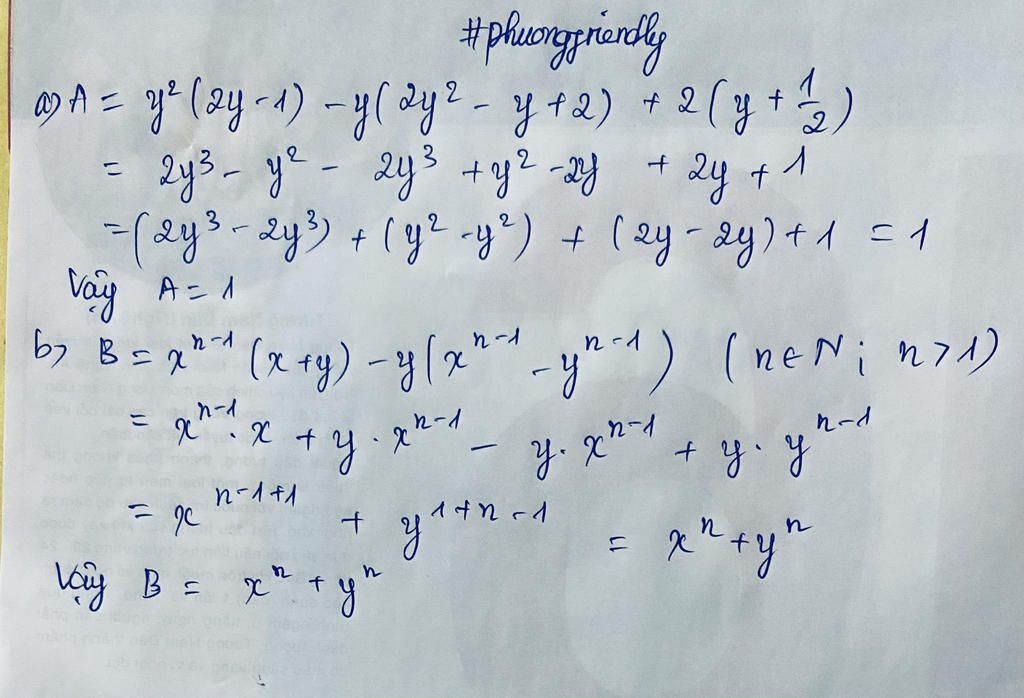 #phuongfriendly
a) A = y²(2y - 1) - y(2y² - y + 2) + 2(y + 1/2)
= 2y³ - y² - 2y³ + y² - 2y + 2y + 1
= (2y³ - 2y³) + (y² - y²) + (2y - 2y) + 1 = 1
Vậy A = 1
b) B = xⁿ⁻¹(x + y) - y(xⁿ⁻¹ - yⁿ⁻¹) (n ∈ N; n > 1)
= xⁿ⁻¹ · x + y · xⁿ⁻¹ - y · xⁿ⁻¹ + y · yⁿ⁻¹
= xⁿ⁻¹⁺¹ + y¹⁺ⁿ⁻¹ = xⁿ + yⁿ
Vậy B = xⁿ + yⁿ